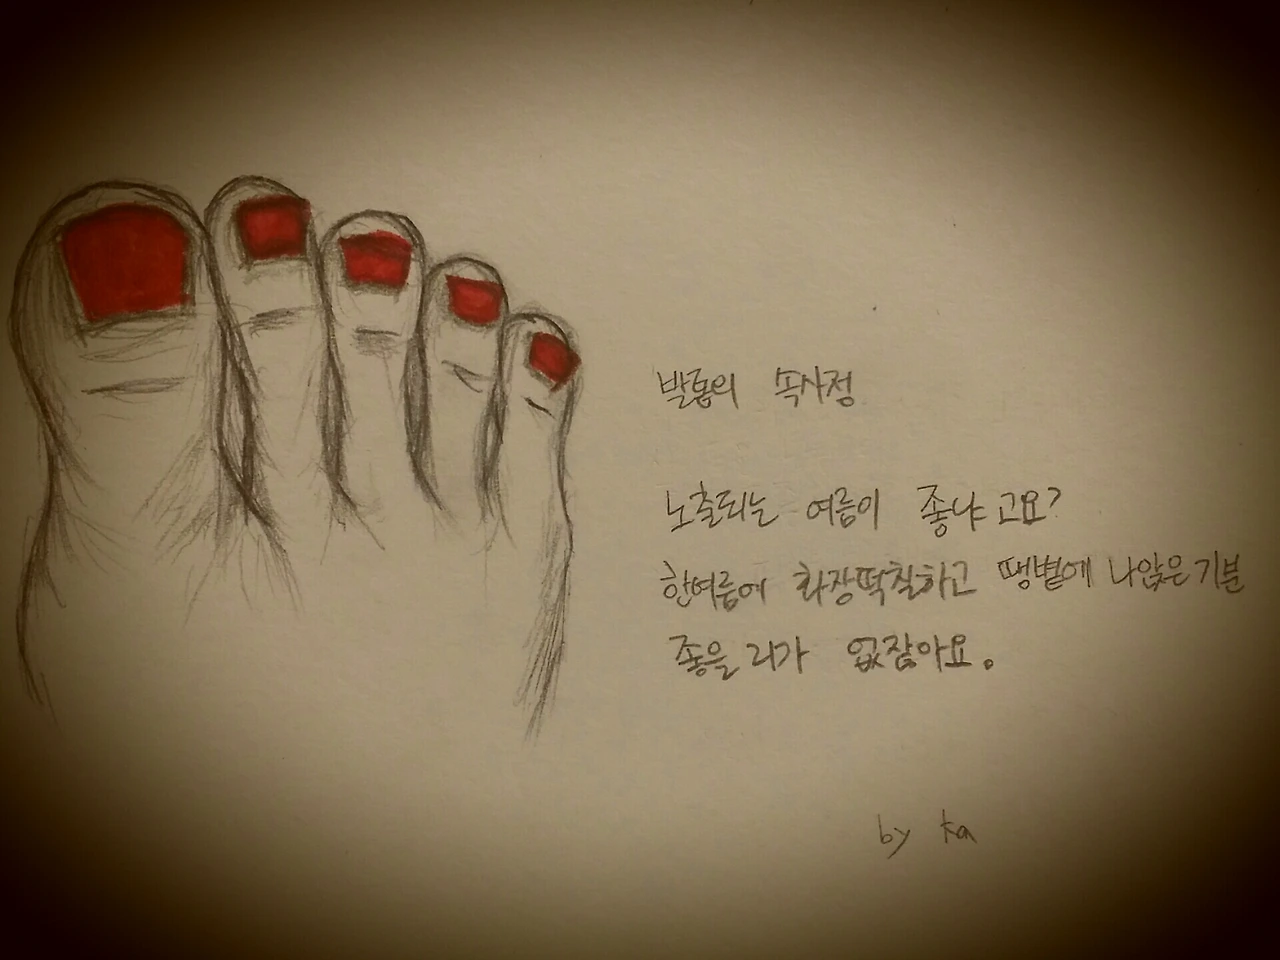 발톱의 속사정
노출되는 여름이 좋냐고요?
한여름에 화장떡칠하고 땡볕에 나앉은 기분
좋을리가 없잖아요.
by ka